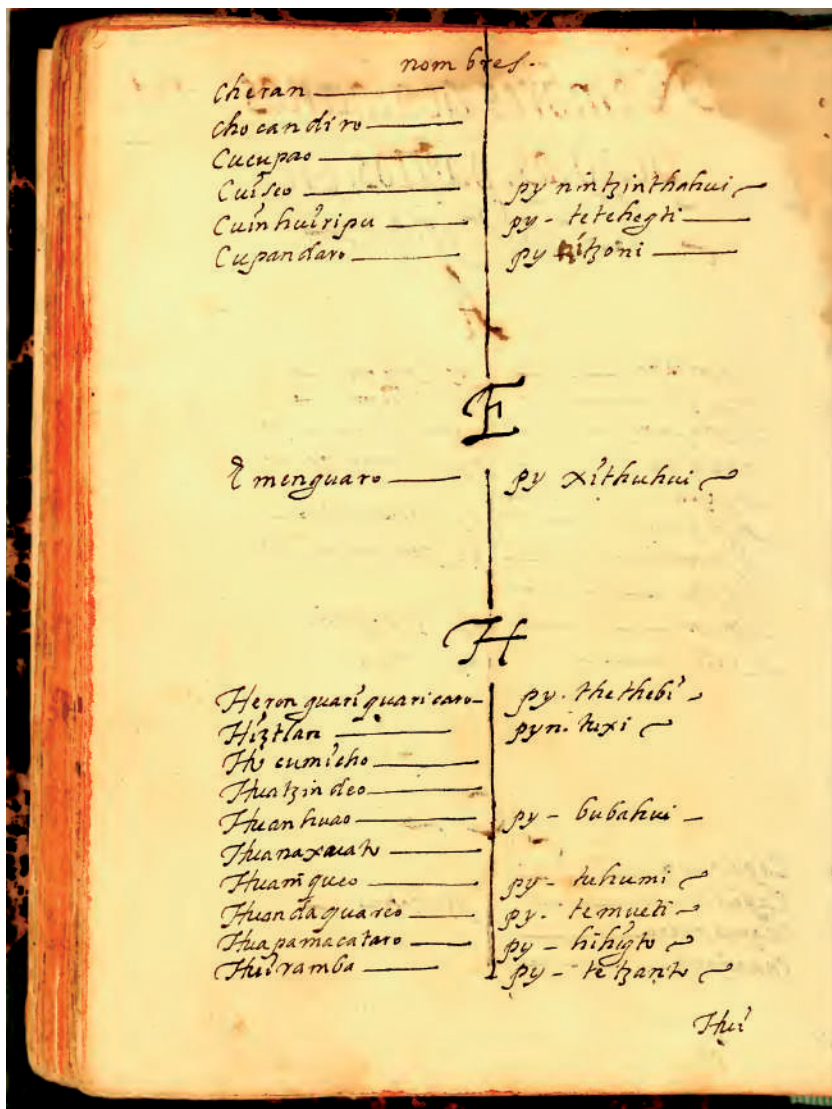 nombres.
Cheran
Chocandiro
Cucupao
Cuiseo py nintzinthahui
Cuinhuiripu py - tetehegti
Cupandaro py nitzoni
E
Emenguaro py xithuhui
H
Heronguariquaricaro py. thethebi
Hiztlan pyn. tuxi
Hucumicho
Huatzindeo
Huanhuao py - bubahui
Huanaxuato
Huam̃queo py - tuhumi
Huandaquareo py. temueti
Huapamacataro py - hihigto
Huiramba py - tetzanto
Hui